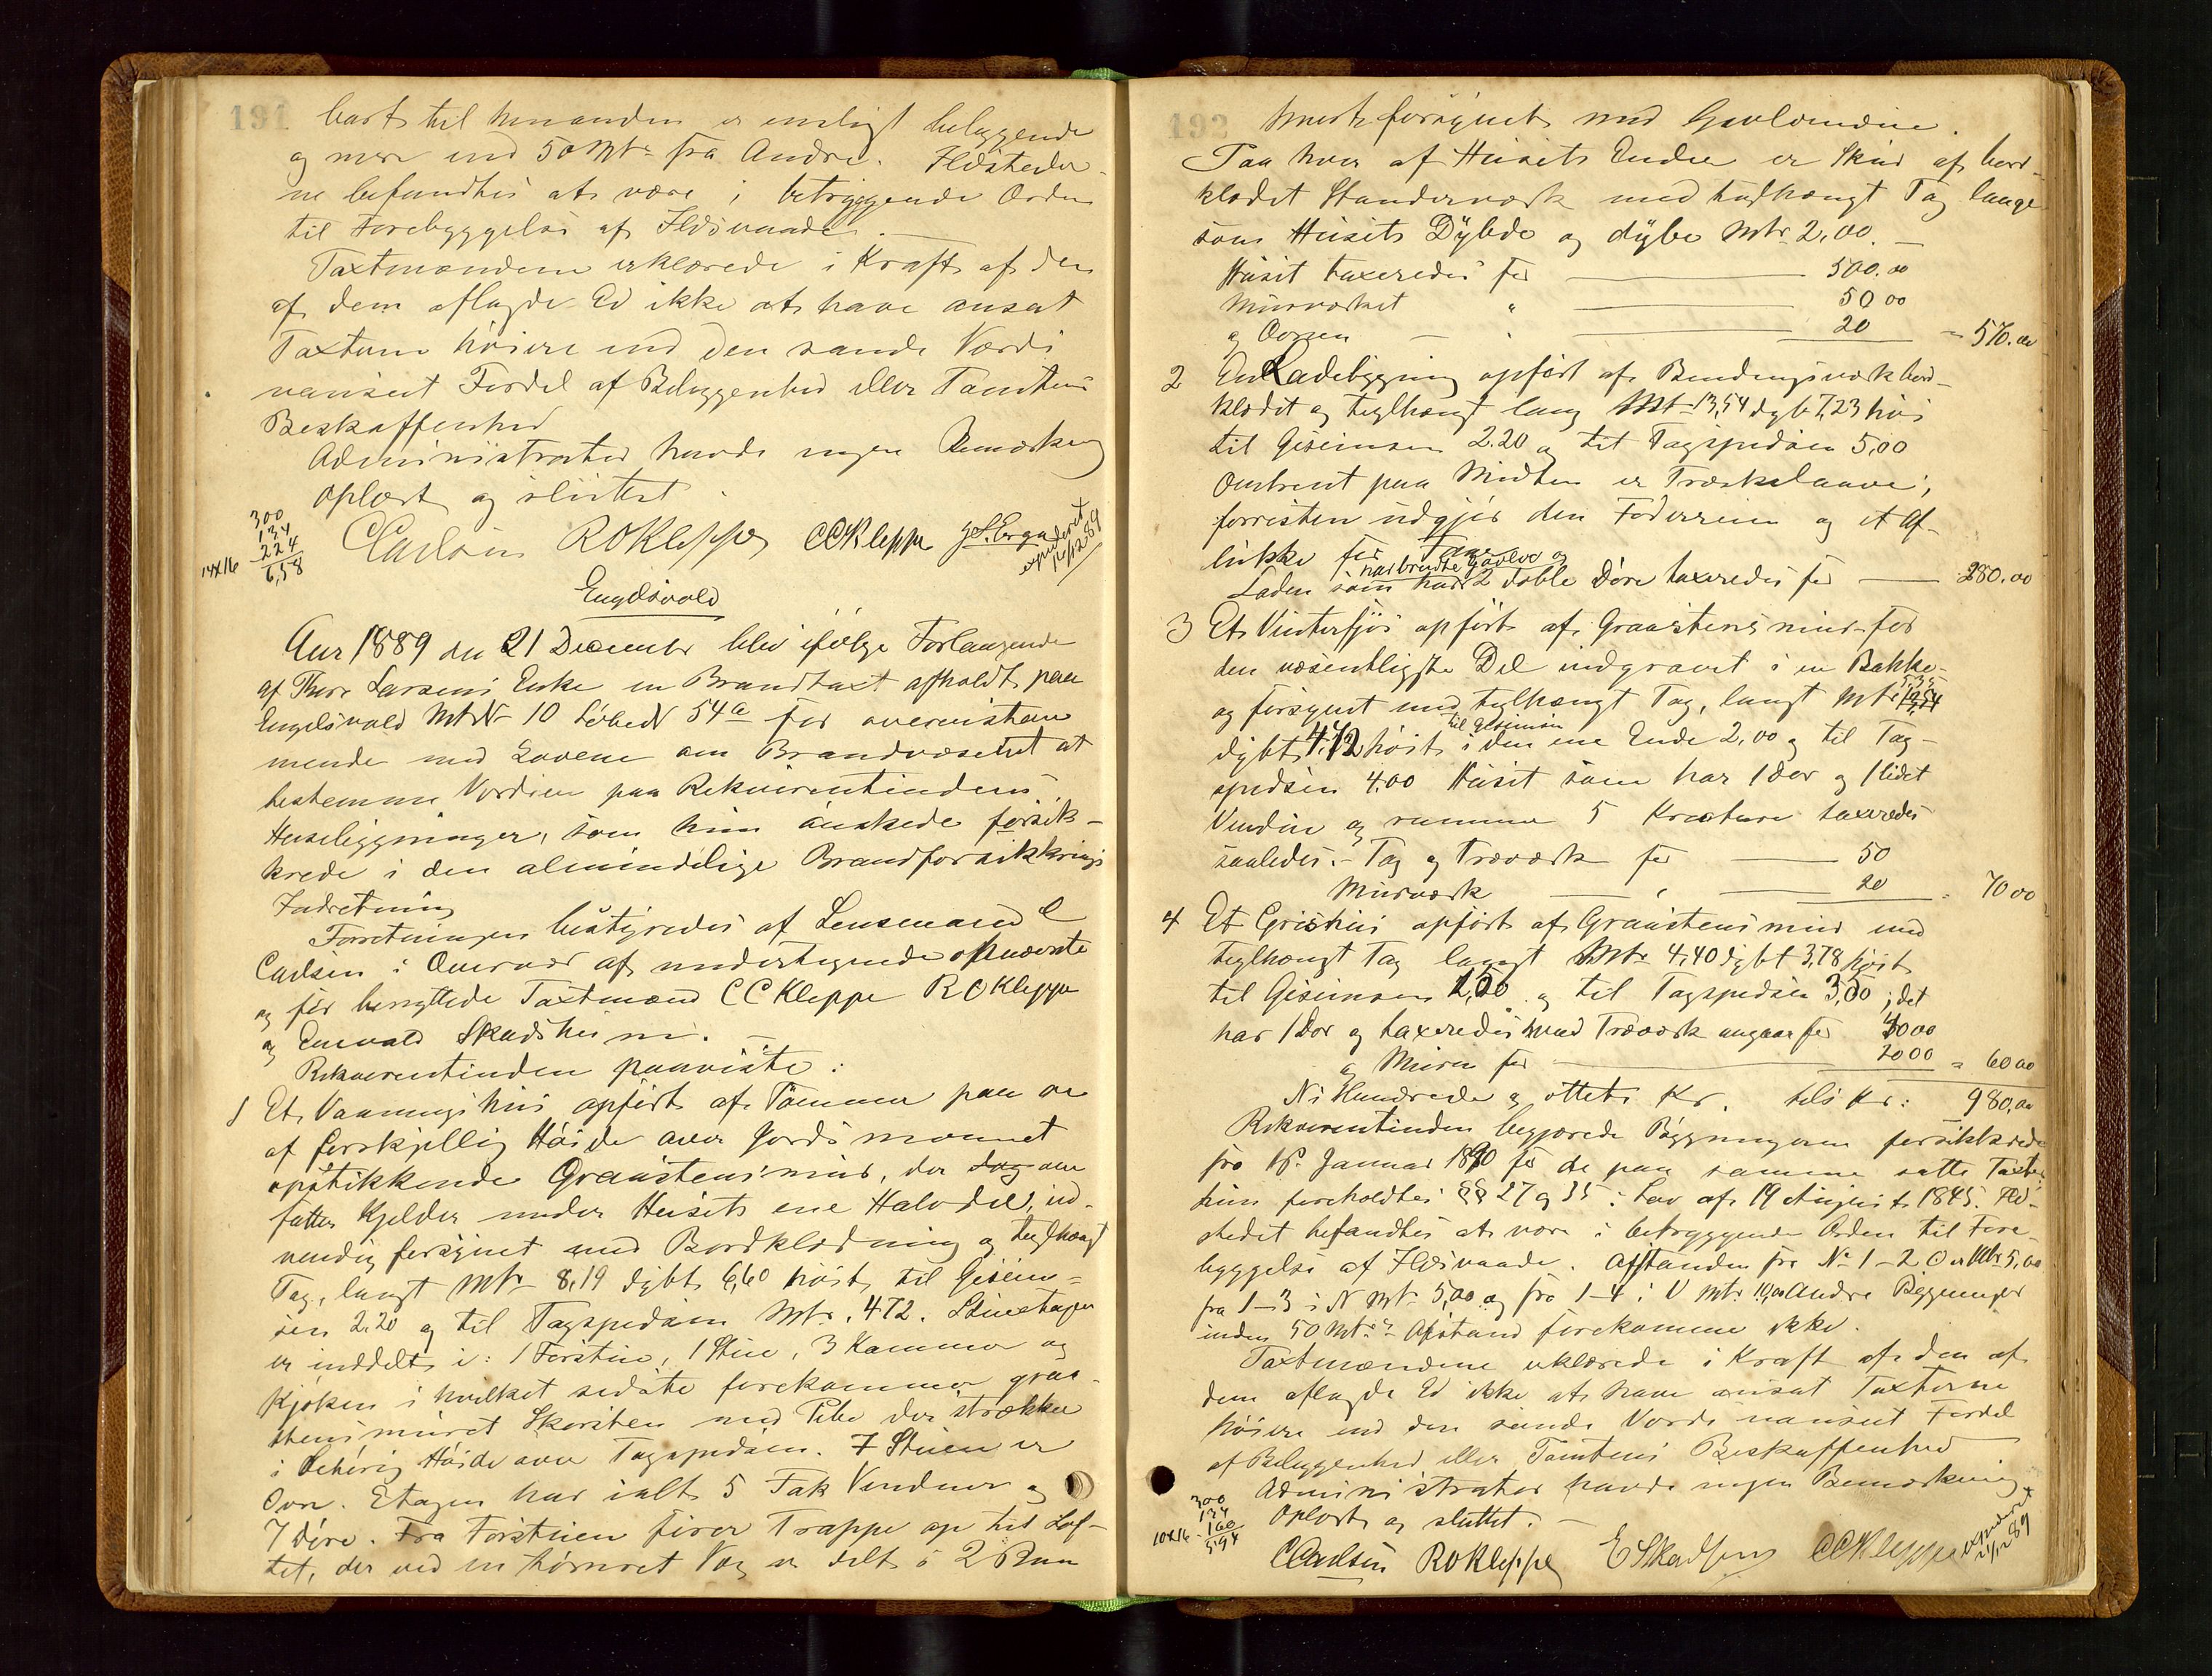 191
bart til hinanden er enligt beliggende
og mere end 50 Mtr fra Andre. Ildstederne
ne befandtes at være i betryggende Orden
til Forebyggelse af Ildsvaade. —
Taxtmændene erklærede i Kraft af den
af dem aflagde Ed ikke at have ansat
Taxterne høiere end den sande Værdi
uanseet Fordel af Beliggenhed eller Tomtens
Beskaffenhed
Administrator havde ingen Bemærkning
Oplæst og sluttet.
300
134
14x16 224
6,58
CCarlsen ROKleppe CCKleppe
expederet
14/12 89
Engelsvold
Aar 1889 den 21 December blev ifølge Forlangende
af Thore Larsens Enke en Brandtaxt afholdt paa
Engelsvold MtrN- 10 LøbeN 54a for overensstem
mende med Lovene om Brandvæsenet at
bestemme Værdien paa Rekvirentindens
Husebygninger, som hun ønskede forsik-
krede i den almindelige Brandforsikkrings
Indretning
Forretningen bestyredes af Lensmand C
Carlsen i Overvær af undertegnede opnævnte
og før benyttede Taxtmænd CCKleppe ROKleppe
og Enevald Skadsheim. —
Rekvirentinden paaviste:
1 Et Vaaningshus opført af Tømmer paa en
af forskjellig Høide over Jordsmonnet
opstikkende Graastensmur, der tog om
fatter Kjelder under Husets ene Halvdel, ud-
vendig forsynet med Bordklædning og teglhængt
Tag, langt Mtr- 8,19 dybt 6,60 høit til Gesim-
sen 2.20 og til Tagspidsen Mtr. 4.72. Stueetagen
er inddelt i: 1 Forstue, 1 Stue, 3 Kammer og
Kjøken i hvilket sidste forekommer graa-
stensmuret Skorsten med Pibe der strækker
i behørig Høide over Tagspidsen. I Stuen er
Ovn. Etagen har ialt 5 Fak Vinduer og
7 Døre. Fra Forstuen fører Trappe op til Lof-
tet, der ved en tømret Væg er delt i 2 Rum
192
hvert forsynet med Gavlvindue.
Paa hver af Husets Ender er Skud af bord-
klædet Standerværk med teglhængt Tag lange
som Husets Dybde og dybe Mtr 2,00. —
Huset taxeredes for — 500.00
Murværket " — 50 00
og Ovnen — " — 20 = 570.00
2 En Ladebygning opført af Bendingsværk bord-
klædet og teglhængt lang Mtr 13,54 dyb 7,23 høi
til Gesimsen 2.20 og til Tagspidsen 5,00
Omtrent paa Midten er Træskelaave;
forresten udgjør den Foderrum og et Af-
lukke for Fæe
har brudte Gavler og
Laden som har 2 doble Døre taxeredes for — 280.00
3 Et Vinterfjøs opført af Graastensmur for
den væsentligste Del indgravet i en Bakke
5,35
og forsynet med teglhængt Tag, langt Mtr 13,54
til Gesimsen
dybt 4.72 høit i den ene Ende 2,00 og til Tag-
spidsen 4.00 Huset som har 1 Dør og 1 lidet
Vindue og rummer 5 Kreature taxeredes
saaledes.- Tag og Træværk for — 50
Murværk — " — 20 = 70 00
4 Et Grisehus opført af Graastensmur med
teglhængt Tag langt Mtr 4,40 dybt 3,78 høit
til Gesimsen 1,50 og til Tagspidsen 3,50; det
har 1 Dør og taxeredes hvad Træværk angaar for 40 00
og Muren for — 20 00 = 60 00
Ni Hundrede og otteti Kr. tils Kr: 980,00
Rekvirentinden begjærede Bygningerne forsikkrede
fra 1ste Januar 1890 for de paa samme satte Taxter
hun foreholdtes §§ 27 og 35 i Lov af 19 August 1845. Ild-
stedet befandtes at være i betryggende Orden til Fore-
byggelse af Ildsvaade. Afstanden fra No 1-2 O er Mtr 5,00
fra 1-3 i N Mtr 5,00 og fra 1-4 i V Mtr 10,00 Andre Bygninger
inden 50 Mtrs Afstand forekomme ikke.
Taxtmændene erklærede i Kraft af den af
dem aflagde Ed ikke at have ansat Taxterne
høiere end den sande Værdi uanseet Fordel
af Beliggenhed eller Tomtens Beskaffenhed —
Administrator havde ingen Bemærkning
Oplæst og sluttet. —
300
134
10x16 - 160
5.94
CCarlsen ROKleppe ESkadsem CCKleppe
expederet
21/12 89